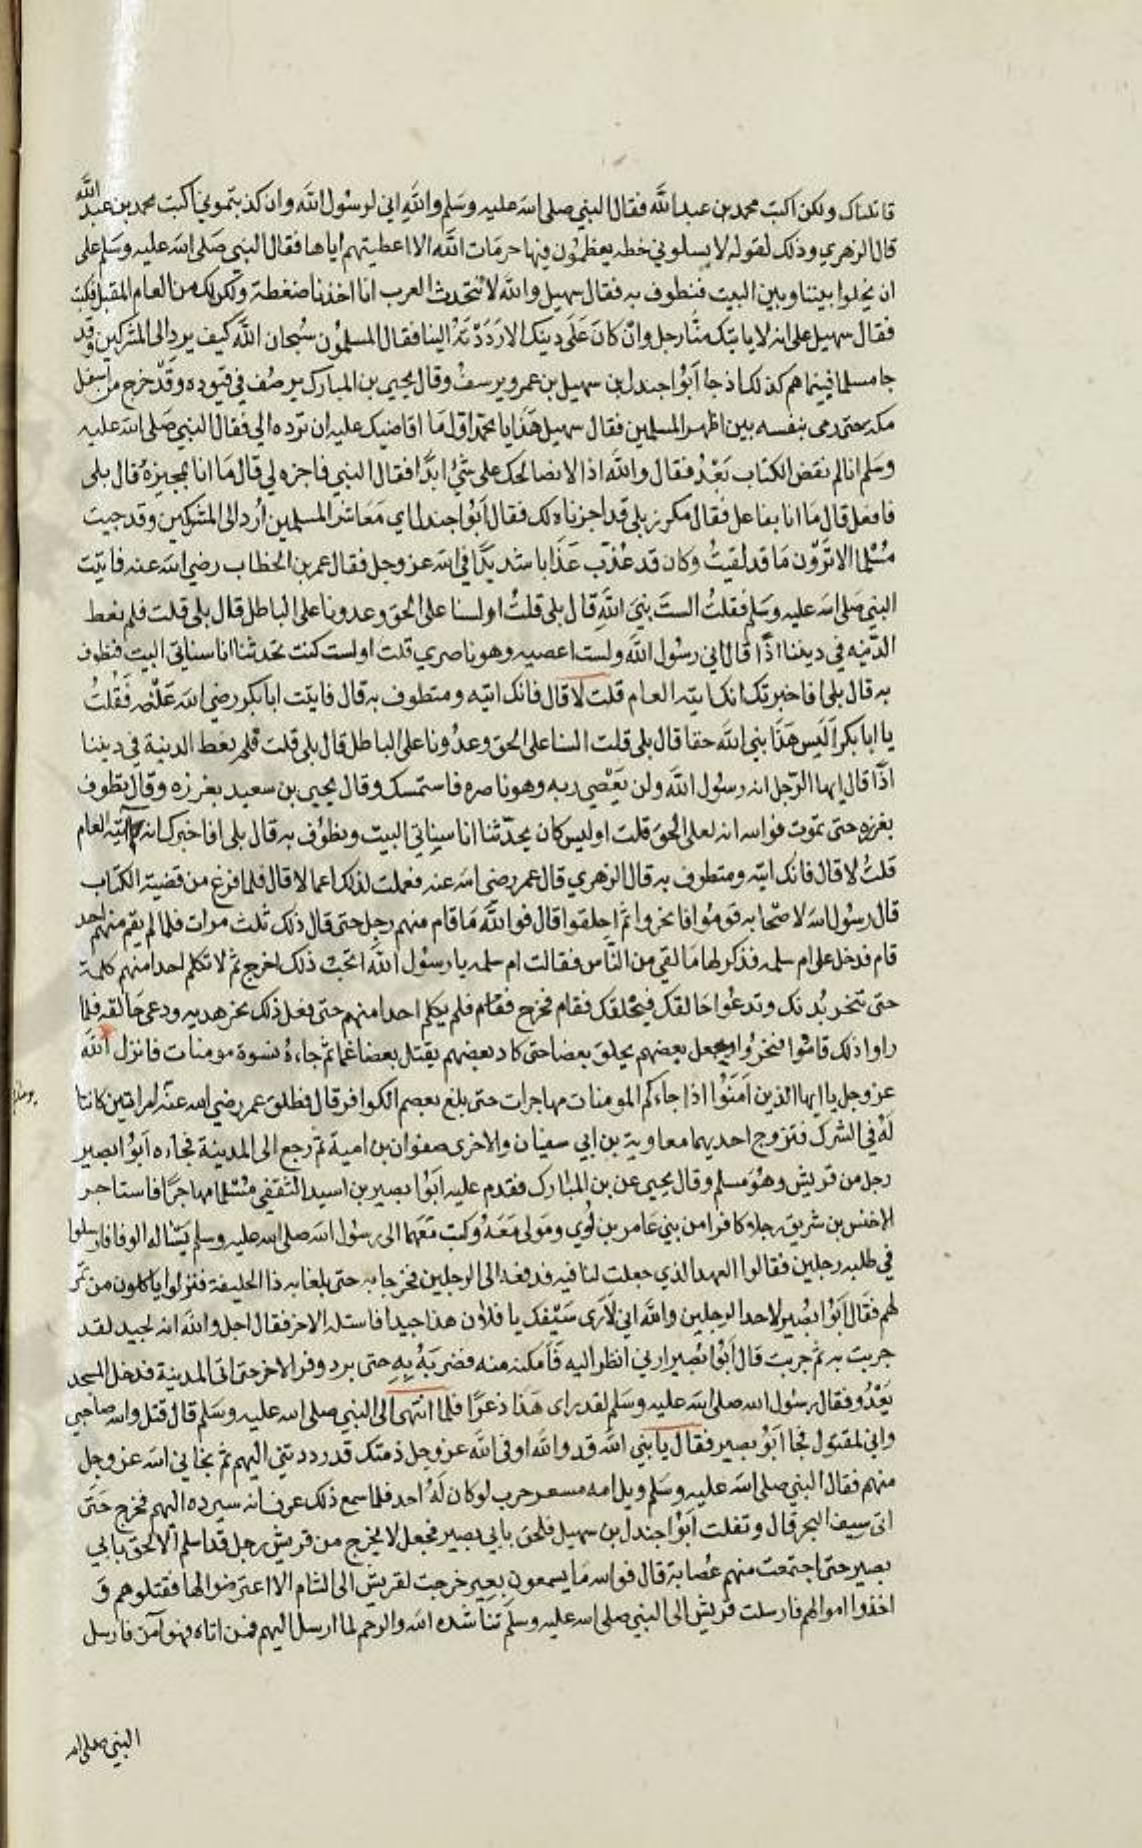 قاتلناك ولكن اكتب محمد بن عبد الله فقال النبي صلى الله عليه وسلم والله اني لرسول الله وان كذبتموني اكتب محمد بن عبد الله
قال الزهري وذلك لقوله لا يسلوني خطه يعظمون فيها حرمات الله الا اعطيتهم اياها فقال النبي صلى الله عليه وسلم على
ان يخلوا بيننا وبين البيت فنطوف به فقال سهيل والله لا تتحدث العرب انا اخذنا ضغطة ولكن لك من العام المقبل فكتب
فقال سهيل على انه لا ياتيك منا رجل وان كان على دينك الا رددته الينا فقال المسلمون سبحان الله كيف يرد الى المشركين وقد
جا مسلما فبينما هم كذلك اذ جا ابوا جندل بن سهيل بن عمرو يرسف وقال يحيى بن المبارك يرصف في قيوده وقد خرج من اسفل
مكه حتى رمى بنفسه بين اظهر المسلمين فقال سهيل هذا يا محمد اول ما اقاضيك عليه ان ترده الي فقال النبي صلى الله عليه
وسلم انا لم نقض الكتاب بعد فقال والله اذا لا نصالحك على شيء ابدا فقال النبي فاجزه لي قال ما انا بمجيزه قال بلى
فافعل قال ما انا بفاعل فقال مكرز بلى قد اجزناه لك فقال ابوا جندل اي معاشر المسلمين ارد الى المشركين وقد جيت
مسلما الا ترون ما قد لقيت وكان قد عذب عذابا شديدا في الله عز وجل فقال عمر بن الخطاب رضي الله عنه فاتيت
النبي صلى الله عليه وسلم فقلت الست نبي الله قال بلى قلت اولسنا على الحق وعدونا على الباطل قال بلى قلت فلم نعط
الدنيه في ديننا اذا قال اني رسول الله ولست اعصيه وهو ناصري قلت اولست كنت تحدثنا انا سناتي البيت فنطوف
به قال بلى افاخبرتك انك اتيه العام قلت لا قال فانك اتيه ومتطوف به قال فاتيت ابا بكر رضي الله عنه فقلت
يا ابا بكر اليس هذا نبي الله حقا قال بلى قلت السنا على الحق وعدونا على الباطل قال بلى قلت فلم نعط الدنية في ديننا
اذا قال ايها الرجل انه رسول الله ولن يعصي ربه وهو ناصره فاستمسك وقال يحيى بن سعيد بغرزه وقال تطوف
بغرزه حتى تموت فوالله انه لعلى الحق قلت اوليس كان يحدثنا انا سناتي البيت ونطوف به قال بلى افاخبرك انه اتيه العام
قلت لا قال فانك اتيه ومتطوف به قال الزهري قال عمر رضي الله عنه فعملت لذلك اعمالا قال فلما فرغ من قضية الكتاب
قال رسول الله لاصحابه قوموا فانحروا ثم احلقوا قال فوالله ما قام منهم رجل حتى قال ذلك ثلث مرات فلما لم يقم منهم احد
قام فدخل على ام سلمه فذكر لها ما لقي من الناس فقالت ام سلمه يا رسول الله اتحب ذلك اخرج ثم لا تكلم احدا منهم كلمة
حتى تنحر بدنك وتدعوا حالقك فيحلقك فقام فخرج فقام فلم يكلم احدا منهم حتى فعل ذلك نحر هديه ودعى حالقه فلما
راوا ذلك قاموا فنحروا وجعل بعضهم يحلق بعضا حتى كاد بعضهم يقتل بعضا غما ثم جاءه نسوة مومنات فانزل الله
عز وجل يا ايها الذين امنوا اذا جاءكم المومنات مهاجرات حتى بلغ بعصم الكوافر قال فطلق عمر رضي الله عنه امراتين كانتا
له في الشرك فتزوج احديهما معاوية بن ابي سفيان والاخرى صفوان بن امية ثم رجع الى المدينة فجاءه ابوا بصير
رجل من قريش وهو مسلم وقال يحيى عن بن المبارك فقدم عليه ابوا بصير بن اسيد الثقفي مسلما مهاجرا فاستاجر
الاخنس بن شريق رجلا كافرا من بني عامر بن لوي ومولى معه وكتب معهما الى رسول الله صلى الله عليه وسلم يساله الوفا فارسلوا
في طلبه رجلين فقالوا العهد الذي جعلت لنا فيه فدفعه الى الرجلين فخرجا به حتى بلغا به ذا الحليفة فنزلوا ياكلون من تمر
لهم فقال ابوا بصير لاحد الرجلين والله اني لارى سيفك يا فلان هذا جيدا فاستله الاخر فقال اجل والله انه لجيد لقد
جربت به ثم جربت قال ابوا بصير ارني انظر اليه فامكنه منه فضربه به حتى برد وفر الاخر حتى اتى المدينة فدخل المسجد
يعدو فقال رسول الله صلى الله عليه وسلم لقد راى هذا ذعرا فلما انتهى الى النبي صلى الله عليه وسلم قال قتل والله صاحبي
واني لمقتول فجا ابوا بصير فقال يا نبي الله قد والله اوفى الله عز وجل ذمتك قد رددتني اليهم ثم نجاني الله عز وجل
منهم فقال النبي صلى الله عليه وسلم ويل امه مسعر حرب لو كان له احد فلما سمع ذلك عرف انه سيرده اليهم فخرج حتى
اتى سيف البحر قال وتفلت ابوا جندل بن سهيل فلحق بابي بصير فجعل لا يخرج من قريش رجل قد اسلم الا لحق بابي
بصير حتى اجتمعت منهم عصابة قال فوالله ما يسمعون بعير خرجت لقريش الى الشام الا اعترضوا لها فقتلوهم و
اخذوا اموالهم فارسلت قريش الى النبي صلى الله عليه وسلم تناشده الله والرحم لما ارسل اليهم فمن اتاه فهو آمن فارسل
النبي صلى الله